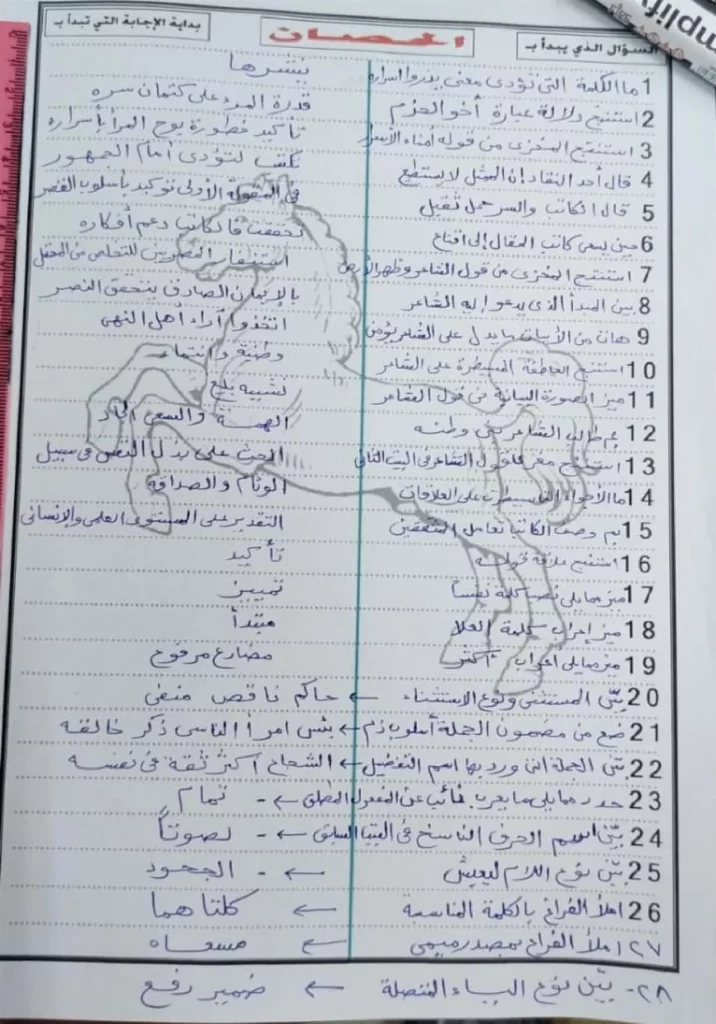 السؤال الذي يبدأ بـ
الحصان
بداية الإجابة التي تبدأ بـ
1 ما الكلمة التي تؤدي معنى يذروا أسراره ينشرها
2 استنتج دلالة عبارة أخو الحزم قدرة المرء على كتمان سره
3 استنتج المغزى من قوله أمناء الأسرار تأكيد خطورة بوح المرء بأسراره
4 قال أحد النقاد إن الممثل لا يستطيع تكتب لتؤدى أمام الجمهور
5 قال الكاتب والسر حمل ثقيل في المقولة الأولى توكيد بأسلوب القصر
6 حين يسعى كاتب المقال إلى إقناع تحققت فالكاتب دعم أفكاره
7 استنتج المغزى من قول الشاعر وظهر الأرض استنفار السوريين للتخلص من المحتل
8 بين المبدأ الذي يدعو إليه الشاعر بالإيمان الصادق يتحقق النصر
9 هات من الأبيات ما يدل على الشاعر يؤمن اتخذوا آراء أهل النهى
10 استنتج العاطفة المسيطرة على الشاعر وطنية وانتماء
11 ميز الصورة البيانية من قول الشاعر تشبيه بليغ
12 بم طالب الشاعر بني وطنه الهمة والسعي الجاد
13 استنتج مغزى قول الشاعر في البيت الثاني الحث على بذل النفس في سبيل
14 ما الأجواء التي سيطرت على العلاقات الوئام والصداقة
15 بم وصف الكاتب تعامل المثقفين التقدير على المستوى العلمي والإنساني
16 استنتج علاقة قوله تأكيد
17 ميز مما يلي نصب كلمة نفساً تمييز
18 ميز إعراب كلمة العلا مبتدأ
19 ميز مما يلي إعراب أكتفي مضارع مرفوع
20 بيّن المستثنى ونوع الاستثناء ← حاكم ناقص منفي
21 ضع من مضمون الجملة أسلوب ذم ← بئس امرأ الناسي ذكر خالقه
22 بيّن الجملة التي ورد بها اسم التفضيل ← الشجاع أكثر ثقة في نفسه
23 حدد مما يلي ما يعرب نائب عن المفعول المطلق ← - تمام
24 بيّن اسم الحرف الناسخ في البيت السابق ← - لصوتاً
25 بيّن نوع اللام ليعيش ← - الجحود
26 املأ الفراغ بالكلمة المناسبة ← كلتاهما
٢٧ املأ الفراغ بمصدر ميمي ← مسعاه
٢٨- بيّن نوع الياء المتصلة ← ضمير رفع